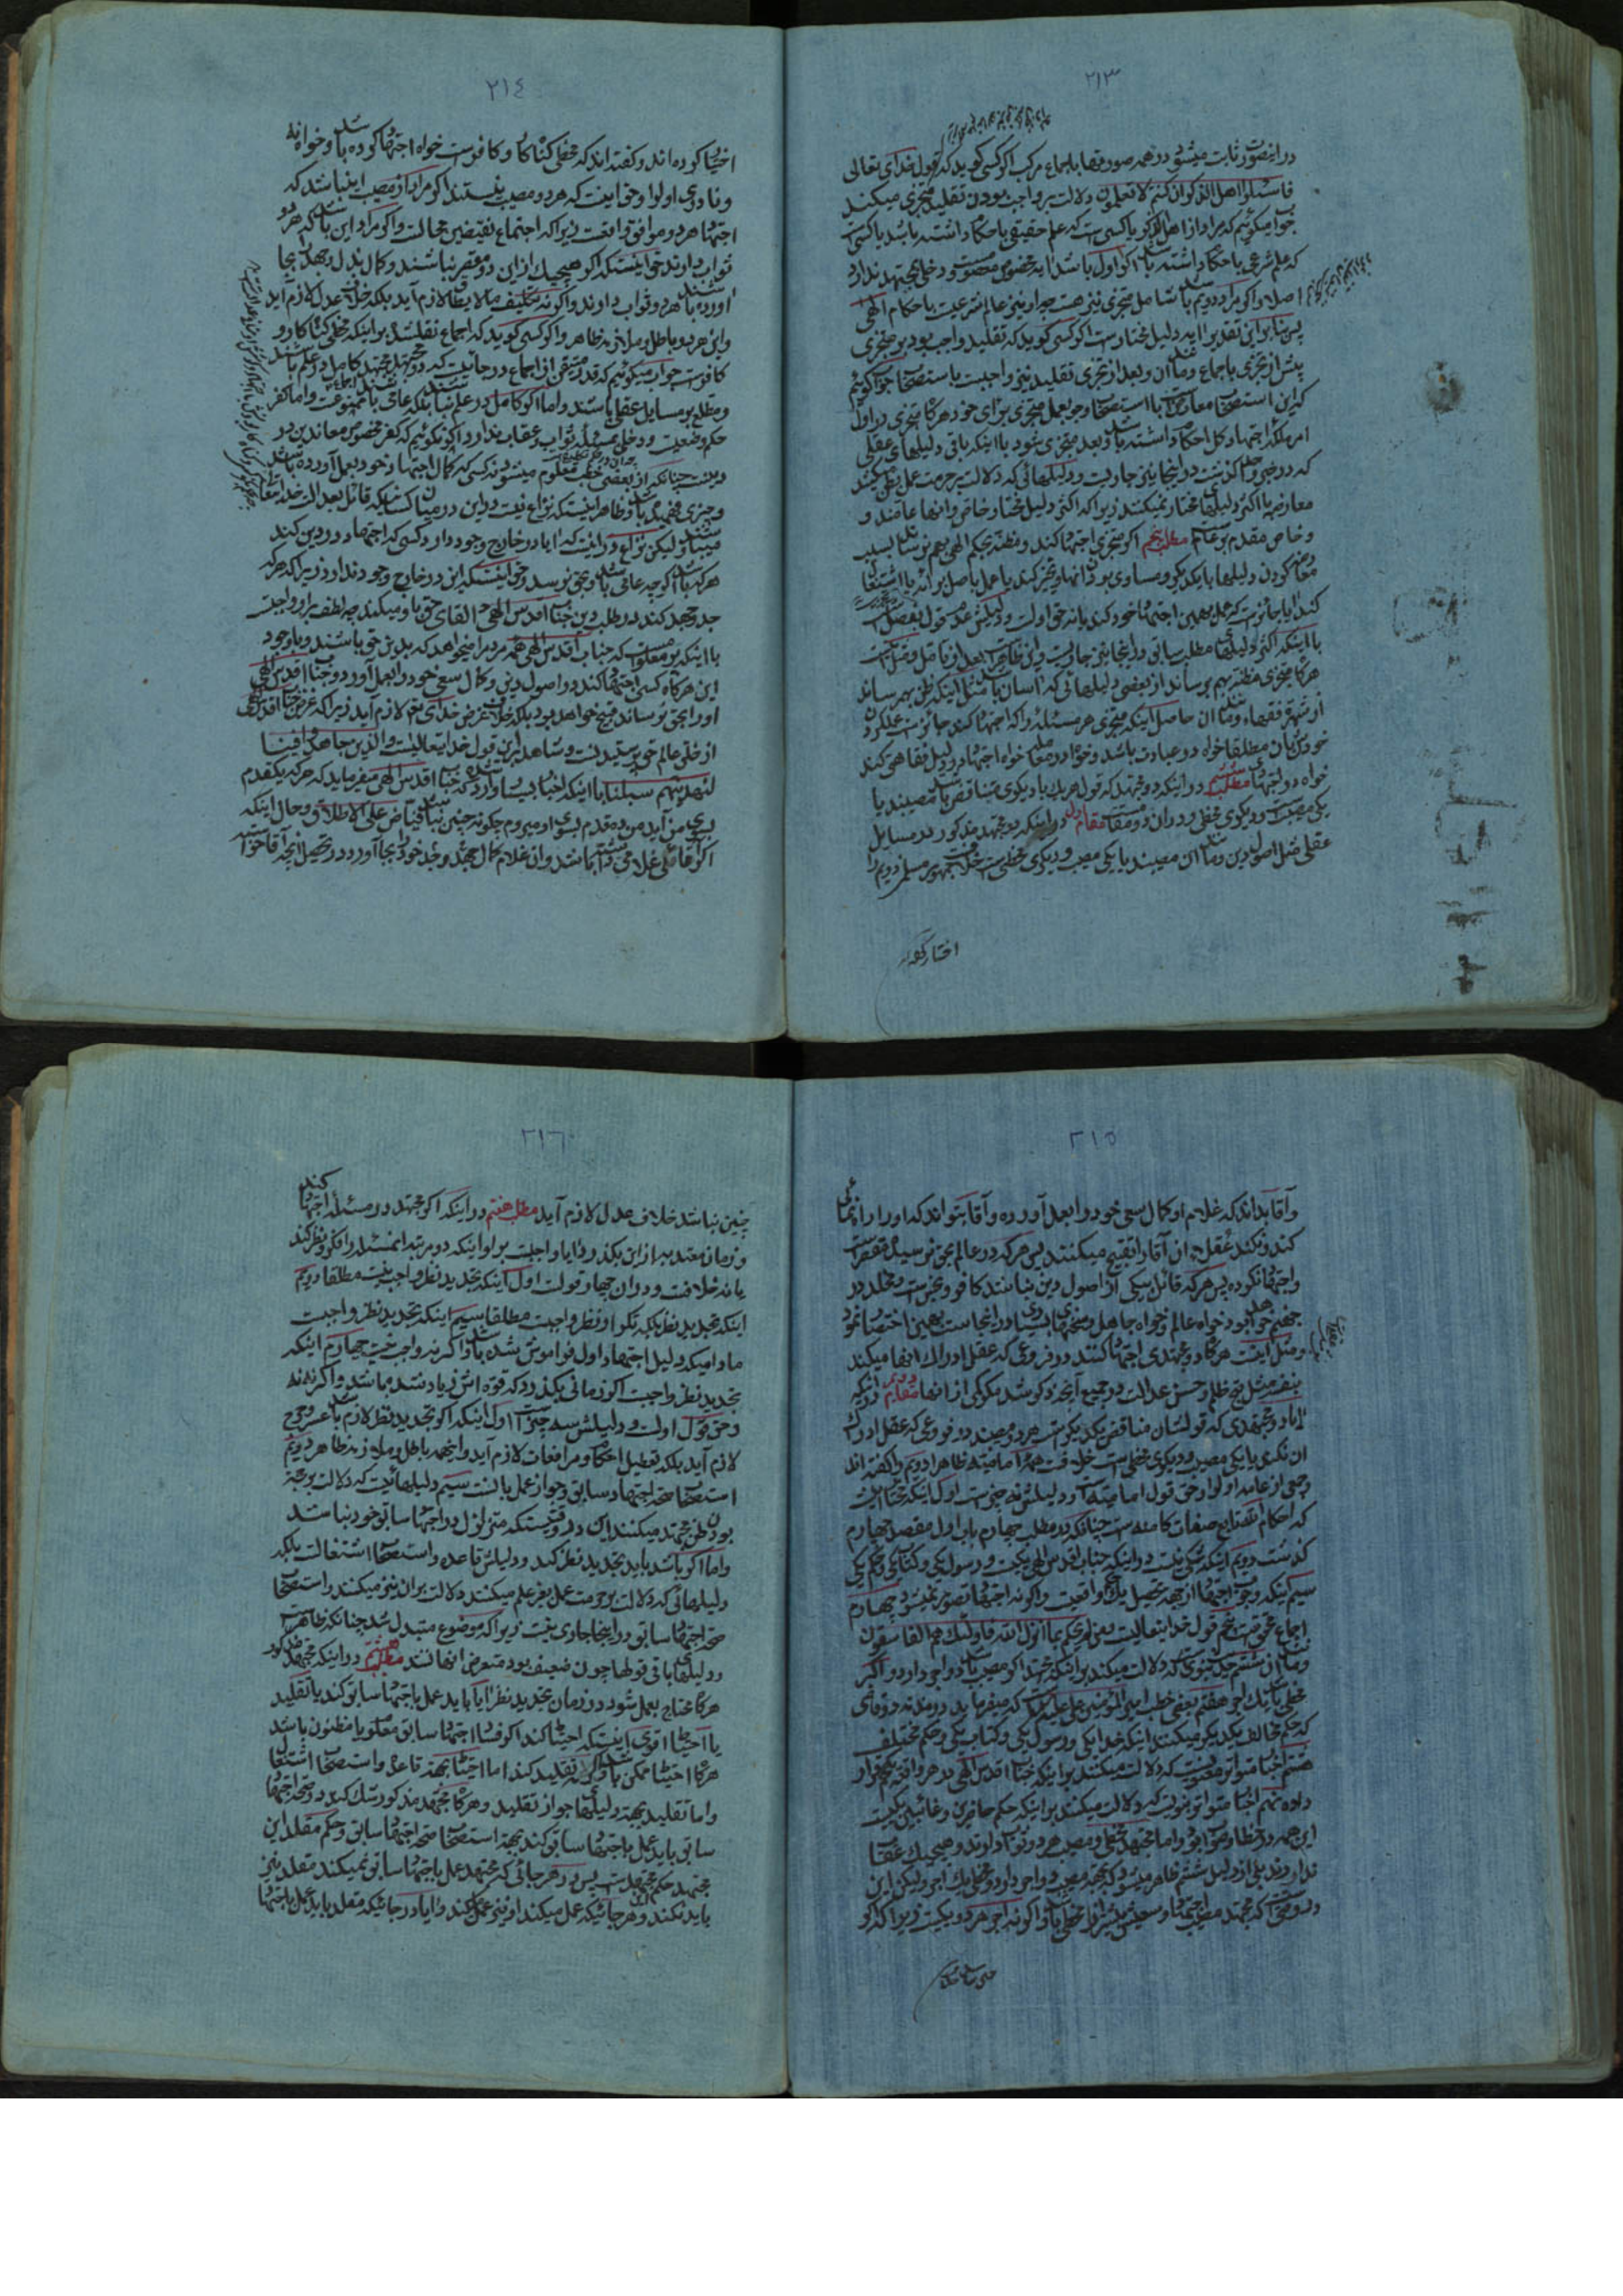 ٢١٣
در اینصورت ثابت میشود در همه صورتها باجماع مرکب اکر کسی کوید که قول خدای تعالی
فاسئلوا اهل الذکر ان کنتم لا تعلمون دلالت بر واجب بودن تقلید متجزی میکند
جواب میکوئیم که مراد از اهل الذکر یا کسی است که علم حقیقی باحکام داشته باشد یا کسی است
که علم شرعی باحکام داشته باشد اکر اول باشد ایه مخصوص معصوم است و دخلی بمجتهد ندارد
اصلا و اکر مراد دویم باشد شامل متجزی نیز هست چه او نیز عالم شرعیست باحکام الهی
پس بنابر این تقدیر ایه دلیل مختار است اکر کسی کوید که تقلید واجب بود بر متجزی
پیش از تجزی باجماع و بعد از تجزی تقلید نیز واجبست باستصحاب جواب کوئیم
که این استصحاب معارض است با استصحاب وجوب عمل متجزی برای خود هرکاه متجزی در اول
امر ملکه اجتهاد کل احکام داشته باشد و بعد متجزی شود با اینکه باقی دلیلهای عقلی
که در حجیت ظن کذشت در اینجا نیز جاریست و دلیلهائی که دلالت بر حرمت عمل بظن میکنند
معارضه با اکثر دلیلهای مختار نمیکنند زیرا که اکثر دلیل مختار خاص و انها عامند و
و خاص مقدم بر عام است مطلب پنجم اکر متجزی اجتهاد کند و مظنه بحکم الهی بهم نرساند بسبب
معارض کردن دلیلها با یکدیکر و مساوی بودن انها و تخیر کند یا عمل باصل برائه یا اشتغال
کند ایا جائز است که عمل بهمین اجتهاد خود کند یا نه حق اول است و دلیلش عدم قول بفصل است
با اینکه اکثر دلیلهای مطلب سابق در اینجا نیز جاریست
هرکاه متجزی مظنه بهم برساند از بعضی دلیلهائی که اسان باشد مثل اینکه ظن بهم رساند
از شهرة فقهاء و مانند ان حاصل اینکه متجزی هر مسئله را که اجتهاد کند جائز است عمل کردن
خودش بان مطلقا خواه در عبادت باشد و خواه در معامله خواه اجتهاد در دلیل فقاهتی کند
خواه در اجتهادی مطلب ششم در اینکه دو مجتهد که قول هر یک با دیکری متناقض باشد مصیبند یا
یکی مصیب است و دیکری مخطی و در ان دو مقام است مقام اول در اینکه دو مجتهد مذکور در مسایل
عقلی مثل اصول دین و مانند ان مصیبند یا یکی مصیب و دیکری مخطی است خلافست جمهور مسلمین دویم را
اختیار کرده‌اند
٢١٤
اختیار کرده اند و کفته اند که مخطی کناه کار و کافر است خواه اجتهاد کرده باشد و خواه نه
و نادری اول را و حق اینست که هر دو مصیب نیستند اکر مراد از مصیب این باشد که
اجتهاد هر دو موافق واقعست زیرا که اجتماع نقیضین محالست و اکر مراد این باشد که هر دو
ثواب دارند حق اینست که اکر هیچیک از این دو مقصر نباشند و کمال بذل و جهد بجا
اورده باشند هر دو ثواب دارند و اکر نه تکلیف مالا یطاق لازم آید بلکه خلاف عدل لازم آید
و این هر دو باطل و ملازمه ظاهر و اکر کسی کوید که اجماع نقل شده بر اینکه مخطی کناه کار و
کافر است جواب میکوئیم که قدر متیقن از اجماع در جائیست که دو مجتهد مجتهد کامل در علم باشند
و مطلع بر مسایل عقلی باشند و اما اکر کامل در علم نباشند بلکه عامی باشند اجماع ممنوعست و اما کفر
حکم وضعیست و دخلی بمسئله ثواب و عقاب ندارد اکر نکوئیم که کفر مخصوص معاندین در
دینست چنانکه از بعضی خطب معلوم میشود نه کسی که کمال اجتهاد خود بعمل آورده باشد
و چیزی نفهمیده باشد و ظاهر اینست که نزاع نیست در این در میان کسانیکه قائل بعدالت خدا
میباشند و لیکن نزاع در انست که ایا در خارج وجود دارد کسی که اجتهاد در دین کند
هرکه باشد اکرچه عامی باشد و بحق نرسد و حق اینست که این در خارج وجود ندارد زیرا که هرکه
جد و جهد کند در طلب دین جناب اقدس الهی القای حق باو میکند چه لطف بر او واجبست
با اینکه بر معلومست که جناب اقدس الهی همه مردم را میخواهد که بدین حق باشند و با وجود
این هرکاه کسی اجتهاد کند در اصول دین و کمال سعی خود را بعمل آورد و جناب اقدس الهی
او را بحق نرساند قبیح خواهد بود بلکه خلاف غرض خدای تعم لازم آید زیرا که غرض جناب اقدس الهی
از خلق عالم حق پرستیدنست و شاهد بر این قول خدا تعالیست والذین جاهدوا فینا
لنهدینهم سبلنا با اینکه اخبار بسیار وارد شده که جناب اقدس الهی میفرماید که هرکه یکقدم
بسوی من آید من ده قدم بسوی او میروم چکونه چنین نباشد فیاض علی الاطلاق و حال اینکه
اکر اقائی غلامی داشته باشد و ان غلام کمال جهد و جد خود را بجا آورد در تحصیل انچه آقا خواسته
٢١٥
و آقا بداند که غلام او کمال سعی خود را بعمل آورده و آقا بتواند که او را راهنمائی
کند و نکند عقلاء ان آقا را تقبیح میکنند پس هرکه در عالم بحق نرسیده مقصر است
و اجتهاد نکرده پس هرکه قائل بیکی از اصول دین نباشد کافر و نجس است و مخلد در
جهنم خواهد بود خواه عالم و خواه جاهل و سخنهای بسیار در اینجاست بهمین اختصار نمود
و مثل اینست هرکاه دو مجتهدی اجتهاد کنند در فروعی که عقل ادراک انها میکند
بنفسه مثل قبح ظلم و حسن عدالت در جمیع آنچه ذکر شد مکر کمی از انها مقام دویم در اینکه
ایا دو مجتهدی که قولشان مناقض یکدیکر است هر دو مصیبند در فروعی که عقل ادراک
ان نکند یا یکی مصیب و دیکری مخطی است خلافست همه امامیه ظاهرا دویم را کفته اند
و جمعی از عامه اول را و حق قول امامیه است و دلیلش نه چیز است اول اینکه
که احکام الله تابع صفات کامنه است چنانکه در مطلب چهارم باب اول مقصد چهارم
کذشت دویم اینکه شکی نیست در اینکه جناب اقدس الهی یکیست و رسول یکی و کتاب یکی و حکم یکی
سیم اینکه وجوب اجتهاد از جهة تحصیل یک حکم واقعیست و اکر نه اجتهاد تصور نمیشود چهارم
اجماع محقق است پنجم قول خدا تعالیست یعنی و من لم یحکم بما انزل الله فاولئک هم الفاسقون
و مانند ان ششم حدیث نبوی است که دلالت میکند بر اینکه مجتهد اکر مصیب باشد دو اجر دارد و اکر
مخطی باشد یک اجر هفتم بعضی خطب امیر المؤمنین علیه السلام است که میفرماید در مذمه دو قاضی
که حکم مخالف یکدیکر میکنند اینکه خدا یکی و رسول یکی و کتاب یکی و حکم مختلف
هشتم اخبار متواتره معنویست که دلالت میکنند بر اینکه جناب اقدس الهی در هر واقعه حکمی قرار
داده نهم اخبار متواتره معنویست که دلالت میکنند بر اینکه حکم حاضرین و غائبین یکیست
این همه در خطا و صواب بود و اما مجتهد مخطی و مصیب هر دو ثواب دارند و هیچیک عقاب
ندارند بلی از دلیل ششم ظاهر میشود که مجتهد مصیب دو اجر دارد و مخطی یک اجر و لیکن این
در وقتی است که مجتهد مصیب اجتهاد و سعیش بیشتر از مخطی باشد و اکر نه اجر هر دو یکیست زیرا که اکر
٢١٦
چنین نباشد خلاف عدل لازم آید مطلب هفتم در اینکه اکر مجتهد در مسئله اجتهاد کند
و زمان معتد به از این بکذرد ایا واجبست بر او اینکه دو مرتبه انمسئله را فکر و نظر کند
یا نه خلافست و در ان چهار قولست اول اینکه تجدید نظر واجب نیست مطلقا دویم
اینکه تجدید نظر بلکه تکرار نظر واجبست مطلقا سیم اینکه تجدید نظر واجبست
مادامیکه دلیل اجتهاد اول فراموش شده باشد و اکر نه واجب نیست چهارم اینکه
تجدید نظر واجبست اکر زمانی بکذرد که قوه اش زیاد شده باشد و اکر نه نه
و حق قول اولست و دلیلش سه چیز است اول اینکه اکر تجدید نظر لازم باشد عسر و حرج
لازم آید بلکه تعطیل احکام و مرافعات لازم آید و اینهمه باطل و ملازمه ظاهر دویم
استصحاب صحة اجتهاد سابق و جواز عمل بانست سیم دلیلهائیست که دلالت بر حجة
بودن ظن مجتهد میکنند این در وقتیست که متزلزل در اجتهاد سابق خود نباشد
و اما اکر باشد باید تجدید نظر کند و دلیلش قاعده و استصحاب اشتغالست بلکه
دلیلهائی که دلالت بر حرمت عمل بغیر علم میکنند دلالت بر ان نیز میکنند و استصحاب
صحة اجتهاد سابق در اینجا جاری نیست زیرا که موضوع متبدل شد چنانکه ظاهر است
و دلیلهای باقی قولها چون ضعیف بود متعرض انها نشد مطلب هشتم در اینکه مجتهد مذکور
هرکاه محتاج بعمل شود در زمان تجدید نظر ایا باید عمل باجتهاد سابق کند یا تقلید
یا احتیاط اقوی اینست که احتیاط کند اکر فساد اجتهاد سابق معلوم یا مظنون باشد
هرکاه احتیاط ممکن باشد و اکر نه تقلید کند اما احتیاط بجهة قاعده و استصحاب اشتغال
و اما تقلید بجهة دلیلهای جواز تقلید و هرکاه مجتهد مذکور شک کند در صحة اجتهاد
سابق باید عمل باجتهاد سابق کند بجهة استصحاب صحة اجتهاد سابق و حکم مقلد این
مجتهد حکم مجتهد است پس در هر جائی که مجتهد عمل باجتهاد سابق نمیکند مقلد نیز
باید نکند و هر جائیکه عمل میکند او نیز عمل کند و ایا در جائیکه مقلد باید عمل باجتهاد